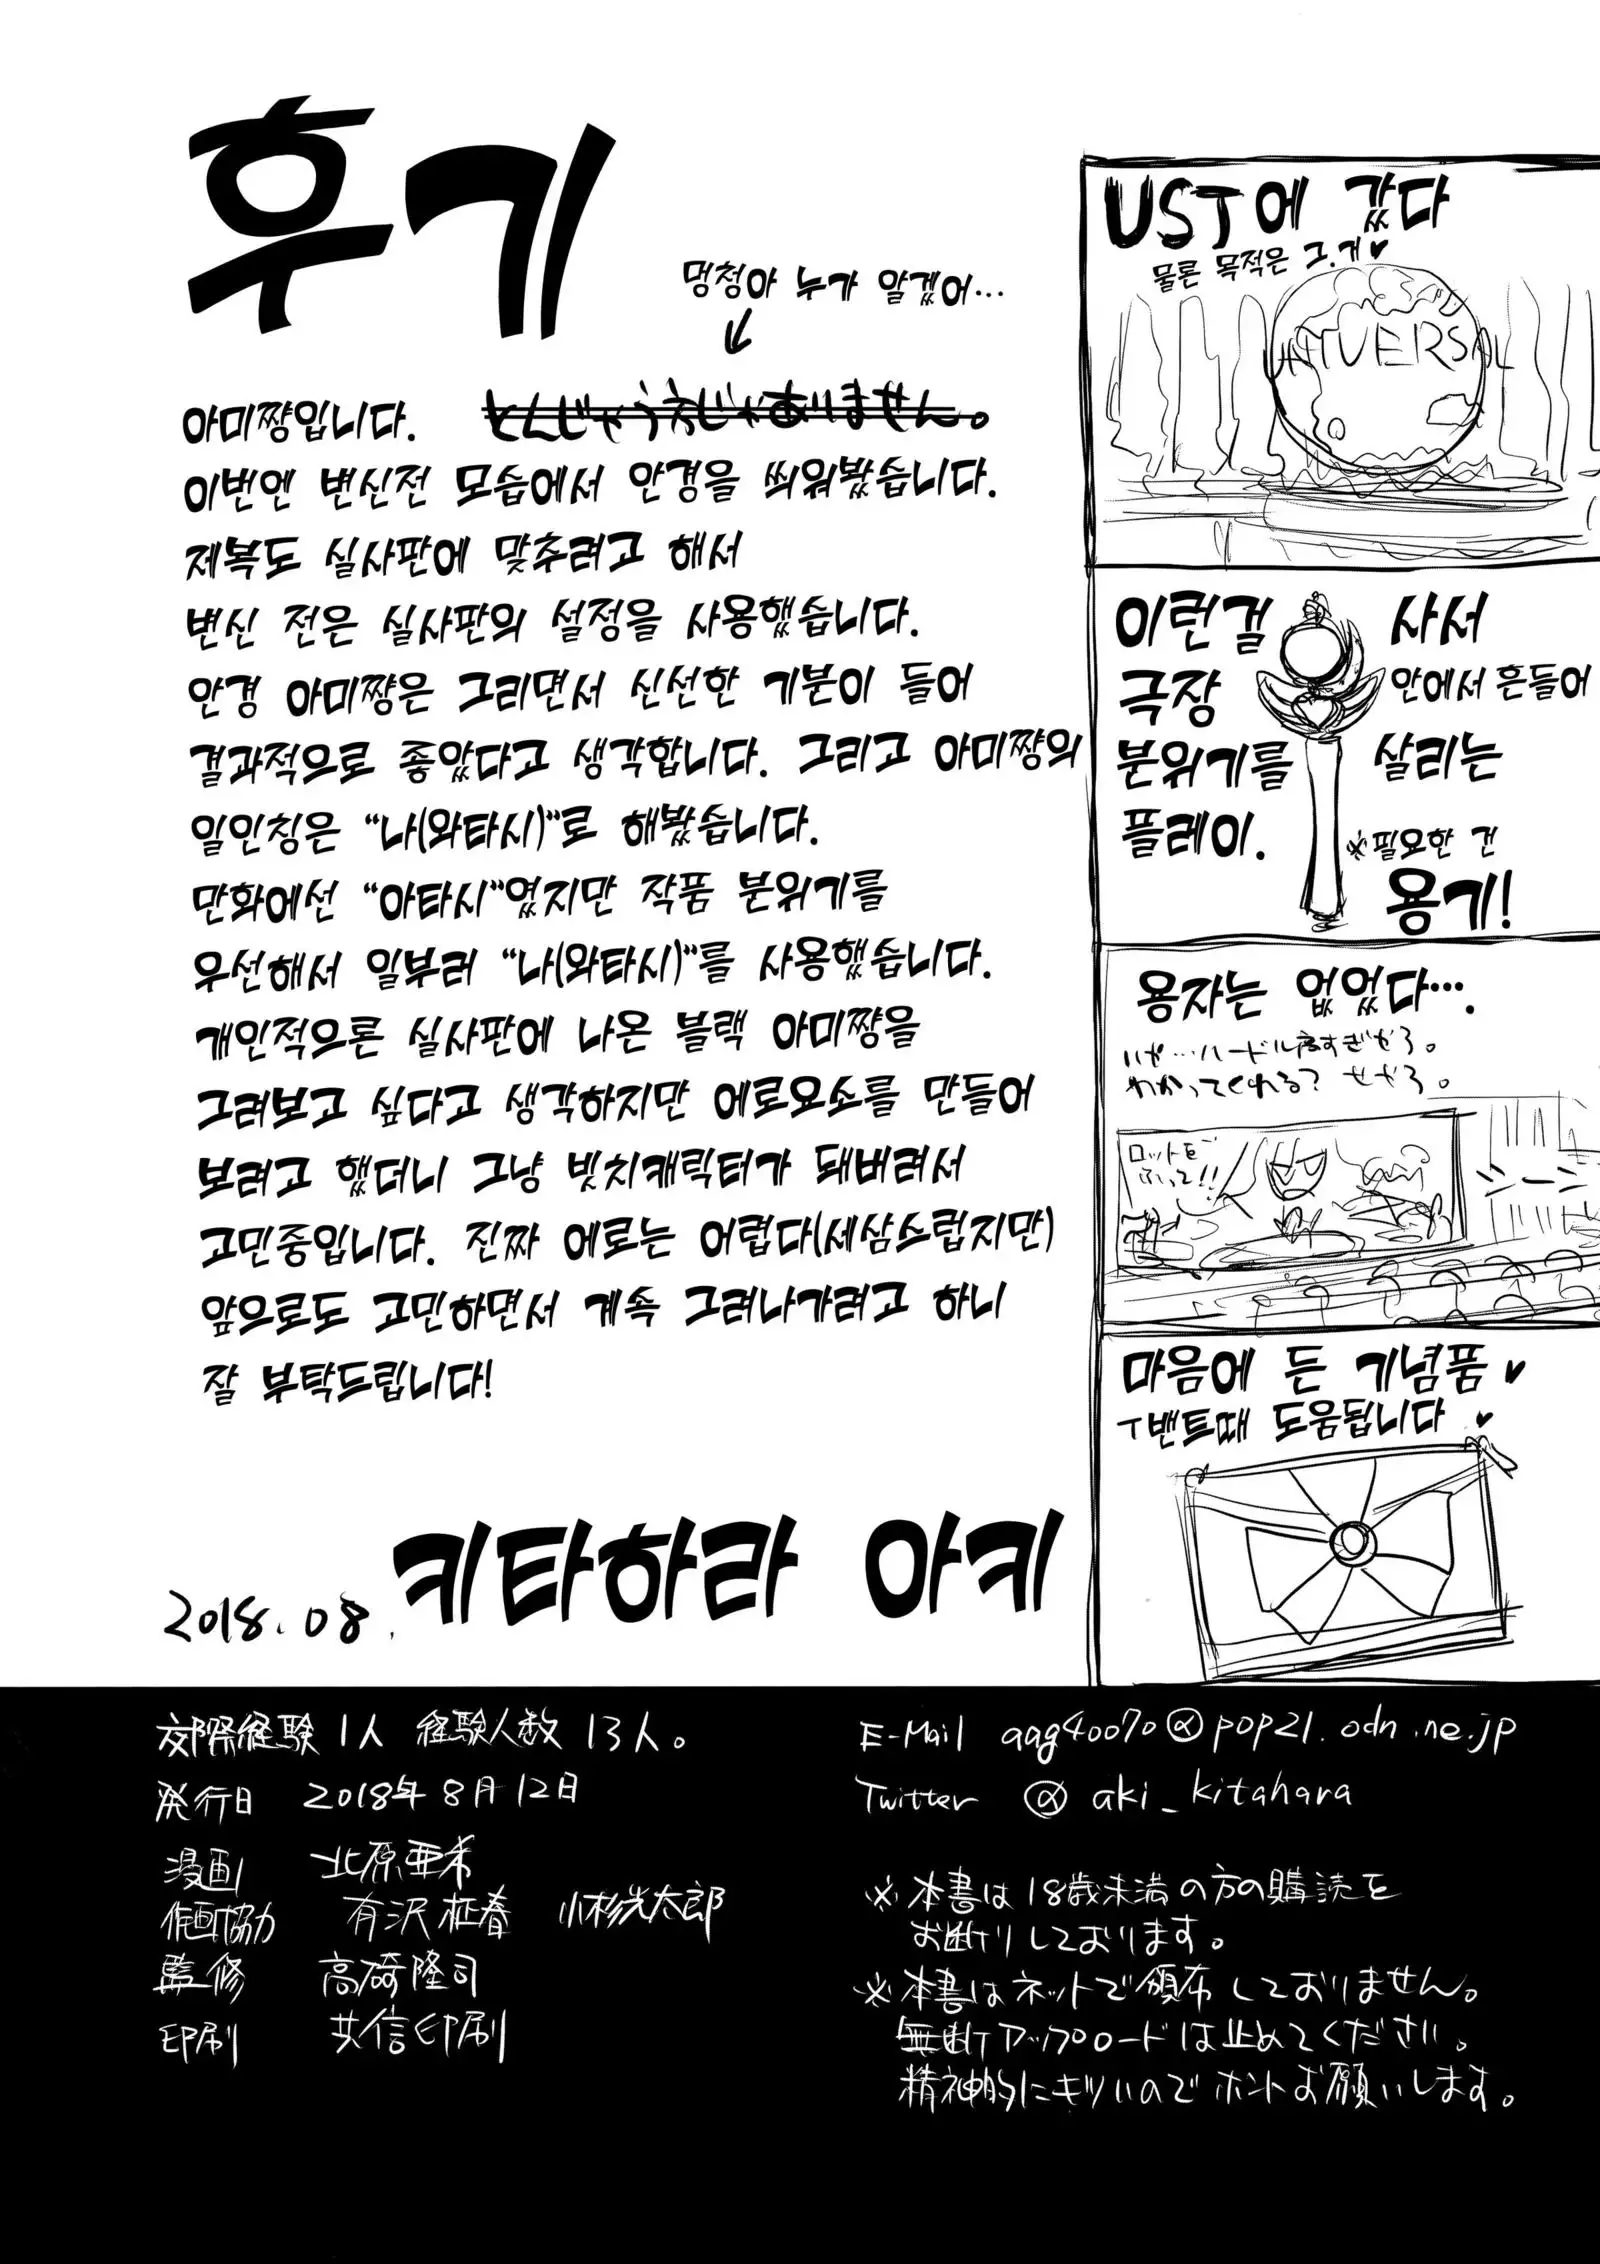 후기
멍청아 누가 알겠어...
아미쨩입니다. とんじゃうえじゃありません。
이번엔 변신전 모습에서 안경을 씌워봤습니다.
제복도 실사판에 맞추려고 해서
변신 전은 실사판의 설정을 사용했습니다.
안경 아미쨩은 그리면서 신선한 기분이 들어
결과적으로 좋았다고 생각합니다. 그리고 아미쨩의
일인칭은 "나(와타시)"로 해봤습니다.
만화에선 "아타시"였지만 작품 분위기를
우선해서 일부러 "나(와타시)"를 사용했습니다.
개인적으론 실사판에 나온 블랙 아미쨩을
그려보고 싶다고 생각하지만 에로요소를 만들어
보려고 했더니 그냥 빗치캐릭터가 돼버려서
고민중입니다. 진짜 에로는 어렵다(세삼스럽지만)
앞으로도 고민하면서 계속 그려나가려고 하니
잘 부탁드립니다!
2018.08. 키타하라 아키
UST에 갔다
물론 목적은 그.거♥
UNIVERSAL
이런걸 사서
극장 안에서 흔들어
분위기를 살리는
플레이.
※필요한 건
용기!
용자는 없었다....
いや…ハードル高すぎやろ。
わかってくれる？せやろ。
ロットを
ふって!!
シーン
마음에 든 기념품♥
ㅜ밴트때 도움됩니다♥
交際経験1人 経験人数13人。
発行日 2018年8月12日
漫画 北原亜希
作画協力 有沢柾春 小杉光太郎
監修 高崎隆司
印刷 共信印刷
E-Mail aag40070@pop21.odn.ne.jp
Twitter @aki_kitahara
※本書は18歳未満の方の購読を
お断りしております。
※本書はネットで頒布しておりません。
無断アップロードは止めてください。
精神的にキツいのでホントお願いします。